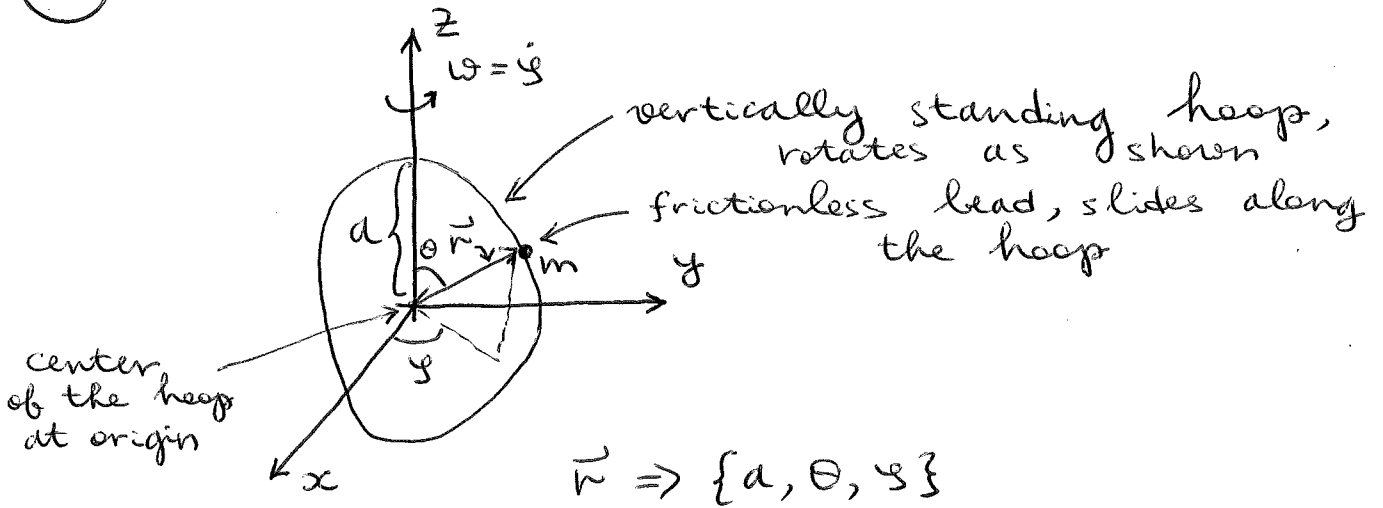 z
ω = φ̇
vertically standing hoop,
rotates as shown
frictionless bead, slides along
the hoop
a
θ
r⃗
m
y
φ
center
of the hoop
at origin
x
r⃗ ⇒ {a, θ, φ}